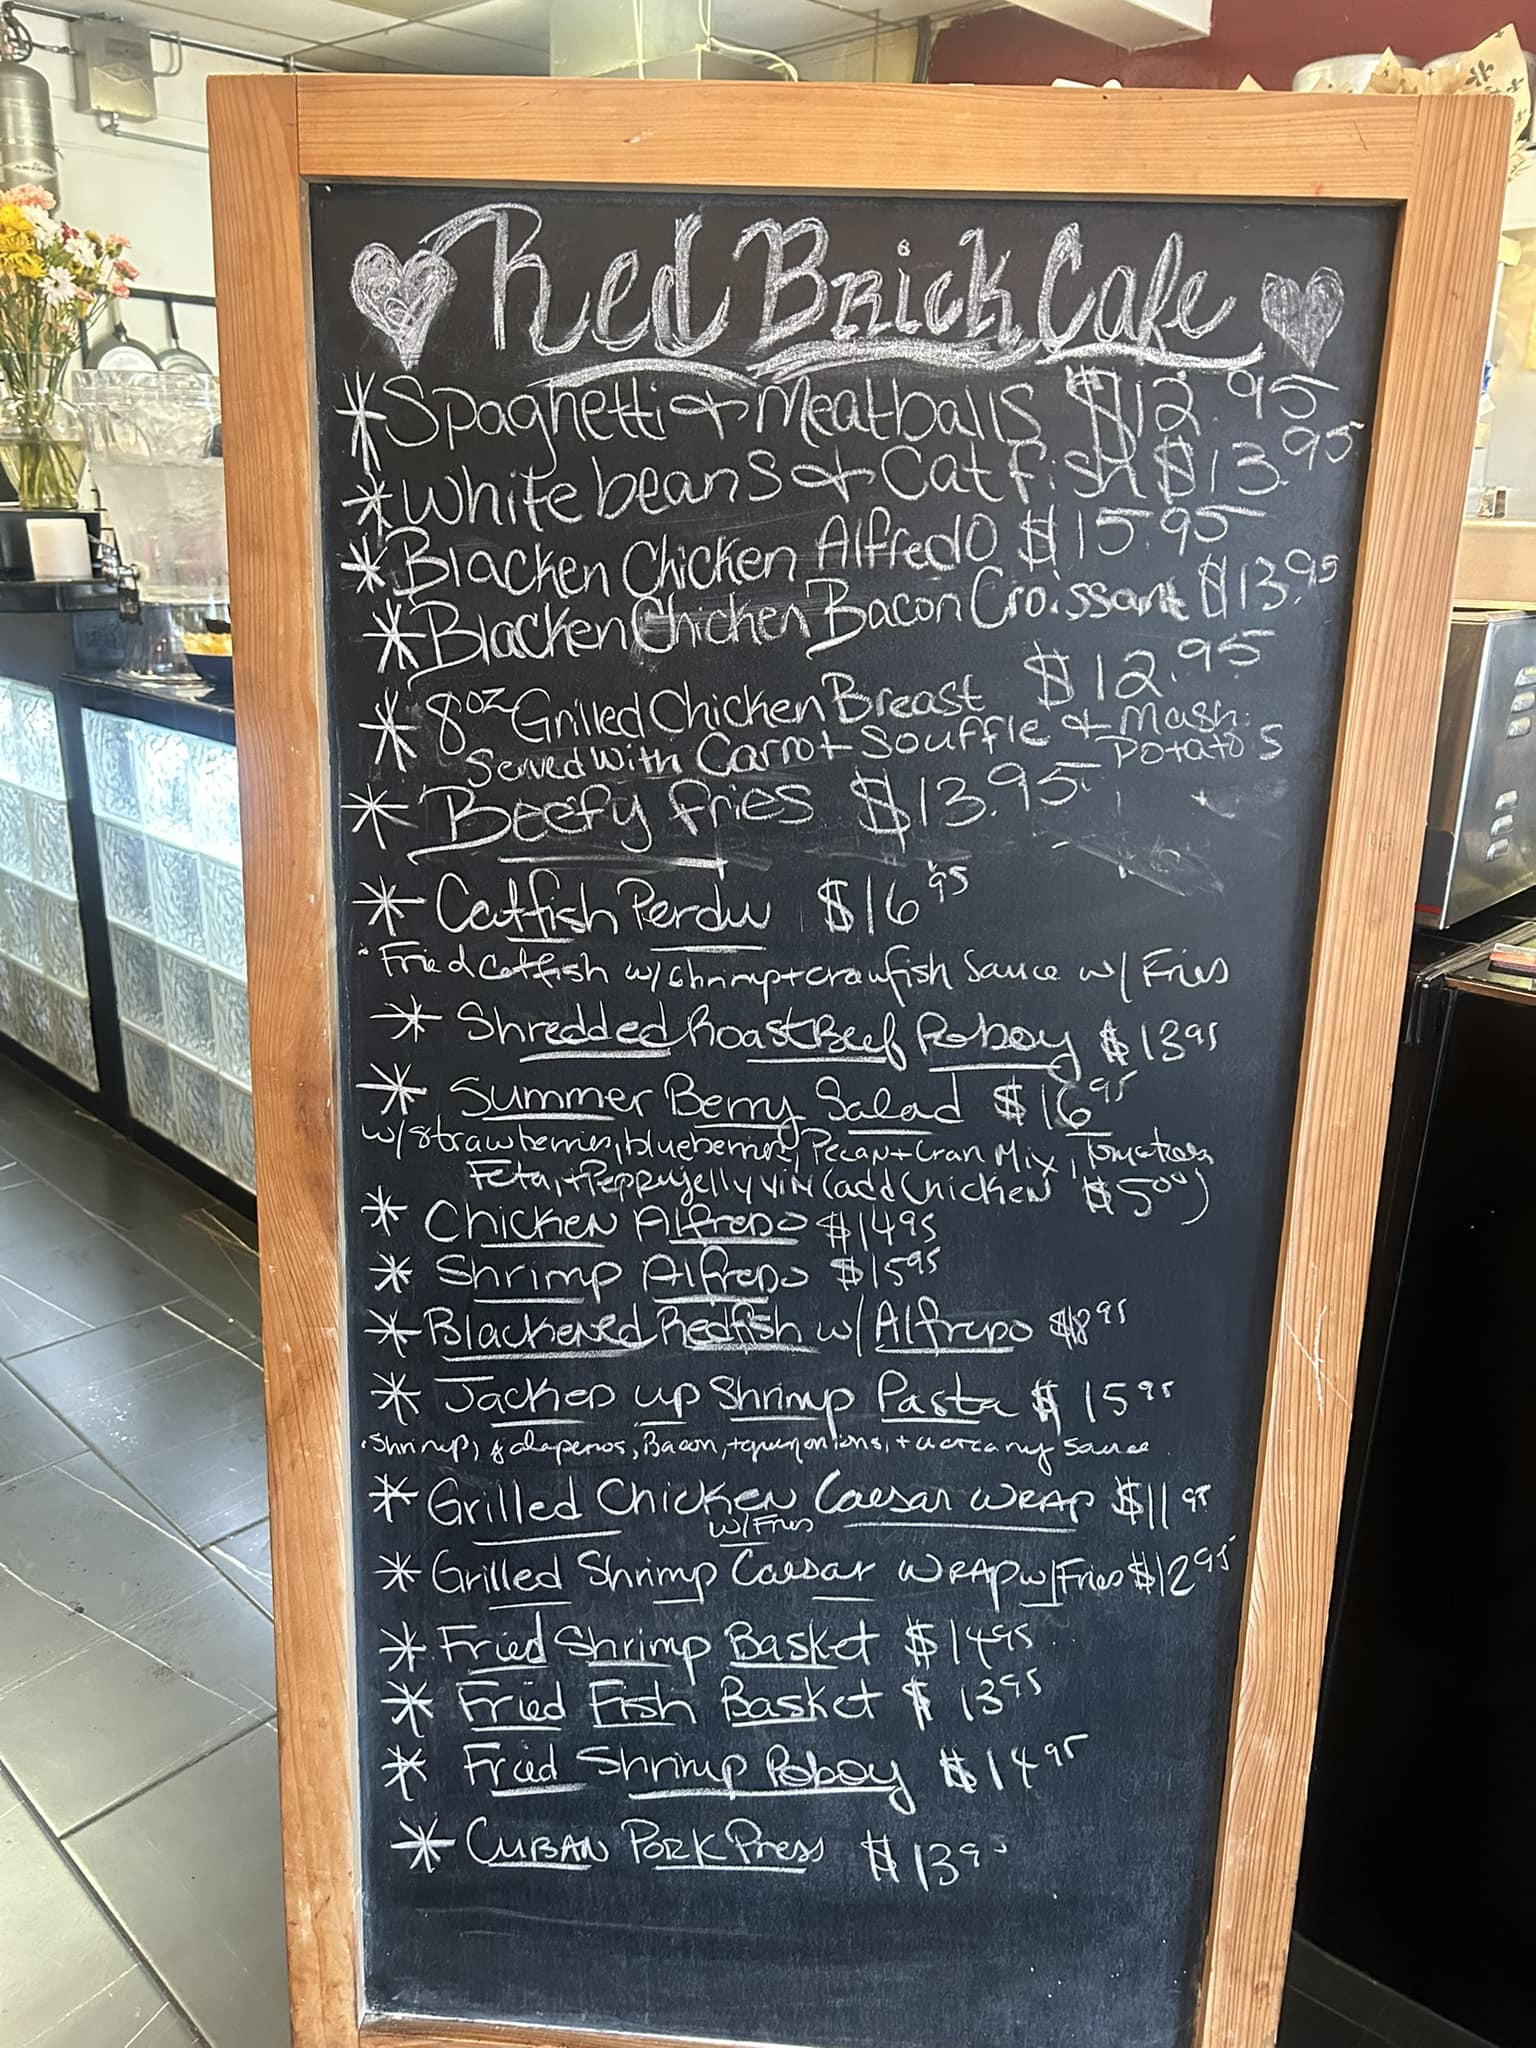 Red Brick Cafe
* Spaghetti & Meatballs $12.95
* White beans & Catfish $13.95
* Blacken Chicken Alfredo $15.95
* Blacken Chicken Bacon Croissant $13.95
* 8oz Grilled Chicken Breast $12.95
Served With Carrot Souffle & Mash Potatos
* Beefy fries $13.95
* Catfish Perdu $16.95
Fried Catfish w/ Shrimp + Crawfish Sauce w/ Fries
* Shredded Roast Beef Poboy $13.95
* Summer Berry Salad $16.95
w/ Strawberries, blueberries, Pecan + Cran Mix, Tomatoes,
Feta, + Pepperjelly Vin (add Chicken $5.00)
* Chicken Alfredo $14.95
* Shrimp Alfredo $15.95
* Blackened Redfish w/ Alfredo $18.95
* Jacked up Shrimp Pasta $15.95
Shrimp, Jalapenos, Bacon, + green onions, + a creamy Sauce
* Grilled Chicken Caesar WRAP $11.95
w/ Fries
* Grilled Shrimp Caesar WRAP w/ Fries $12.95
* Fried Shrimp Basket $14.95
* Fried Fish Basket $13.95
* Fried Shrimp Poboy $14.95
* CUBAN PORK Press $13.95